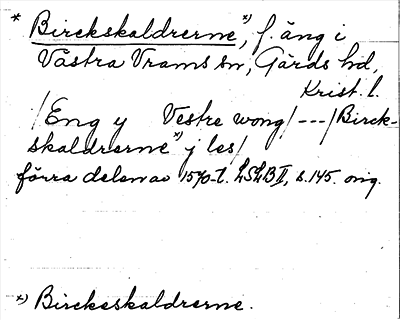 * Birckskaldrerne *), f. äng i
Västra Vrams sn, Gärds hd,
Krist. l.
/Eng y Vestre wong/---/Birck-
skaldrerne *) y les/
förra delen av 1570-t. LSLB II, s. 145. orig.
*) Birckeskaldrerne.